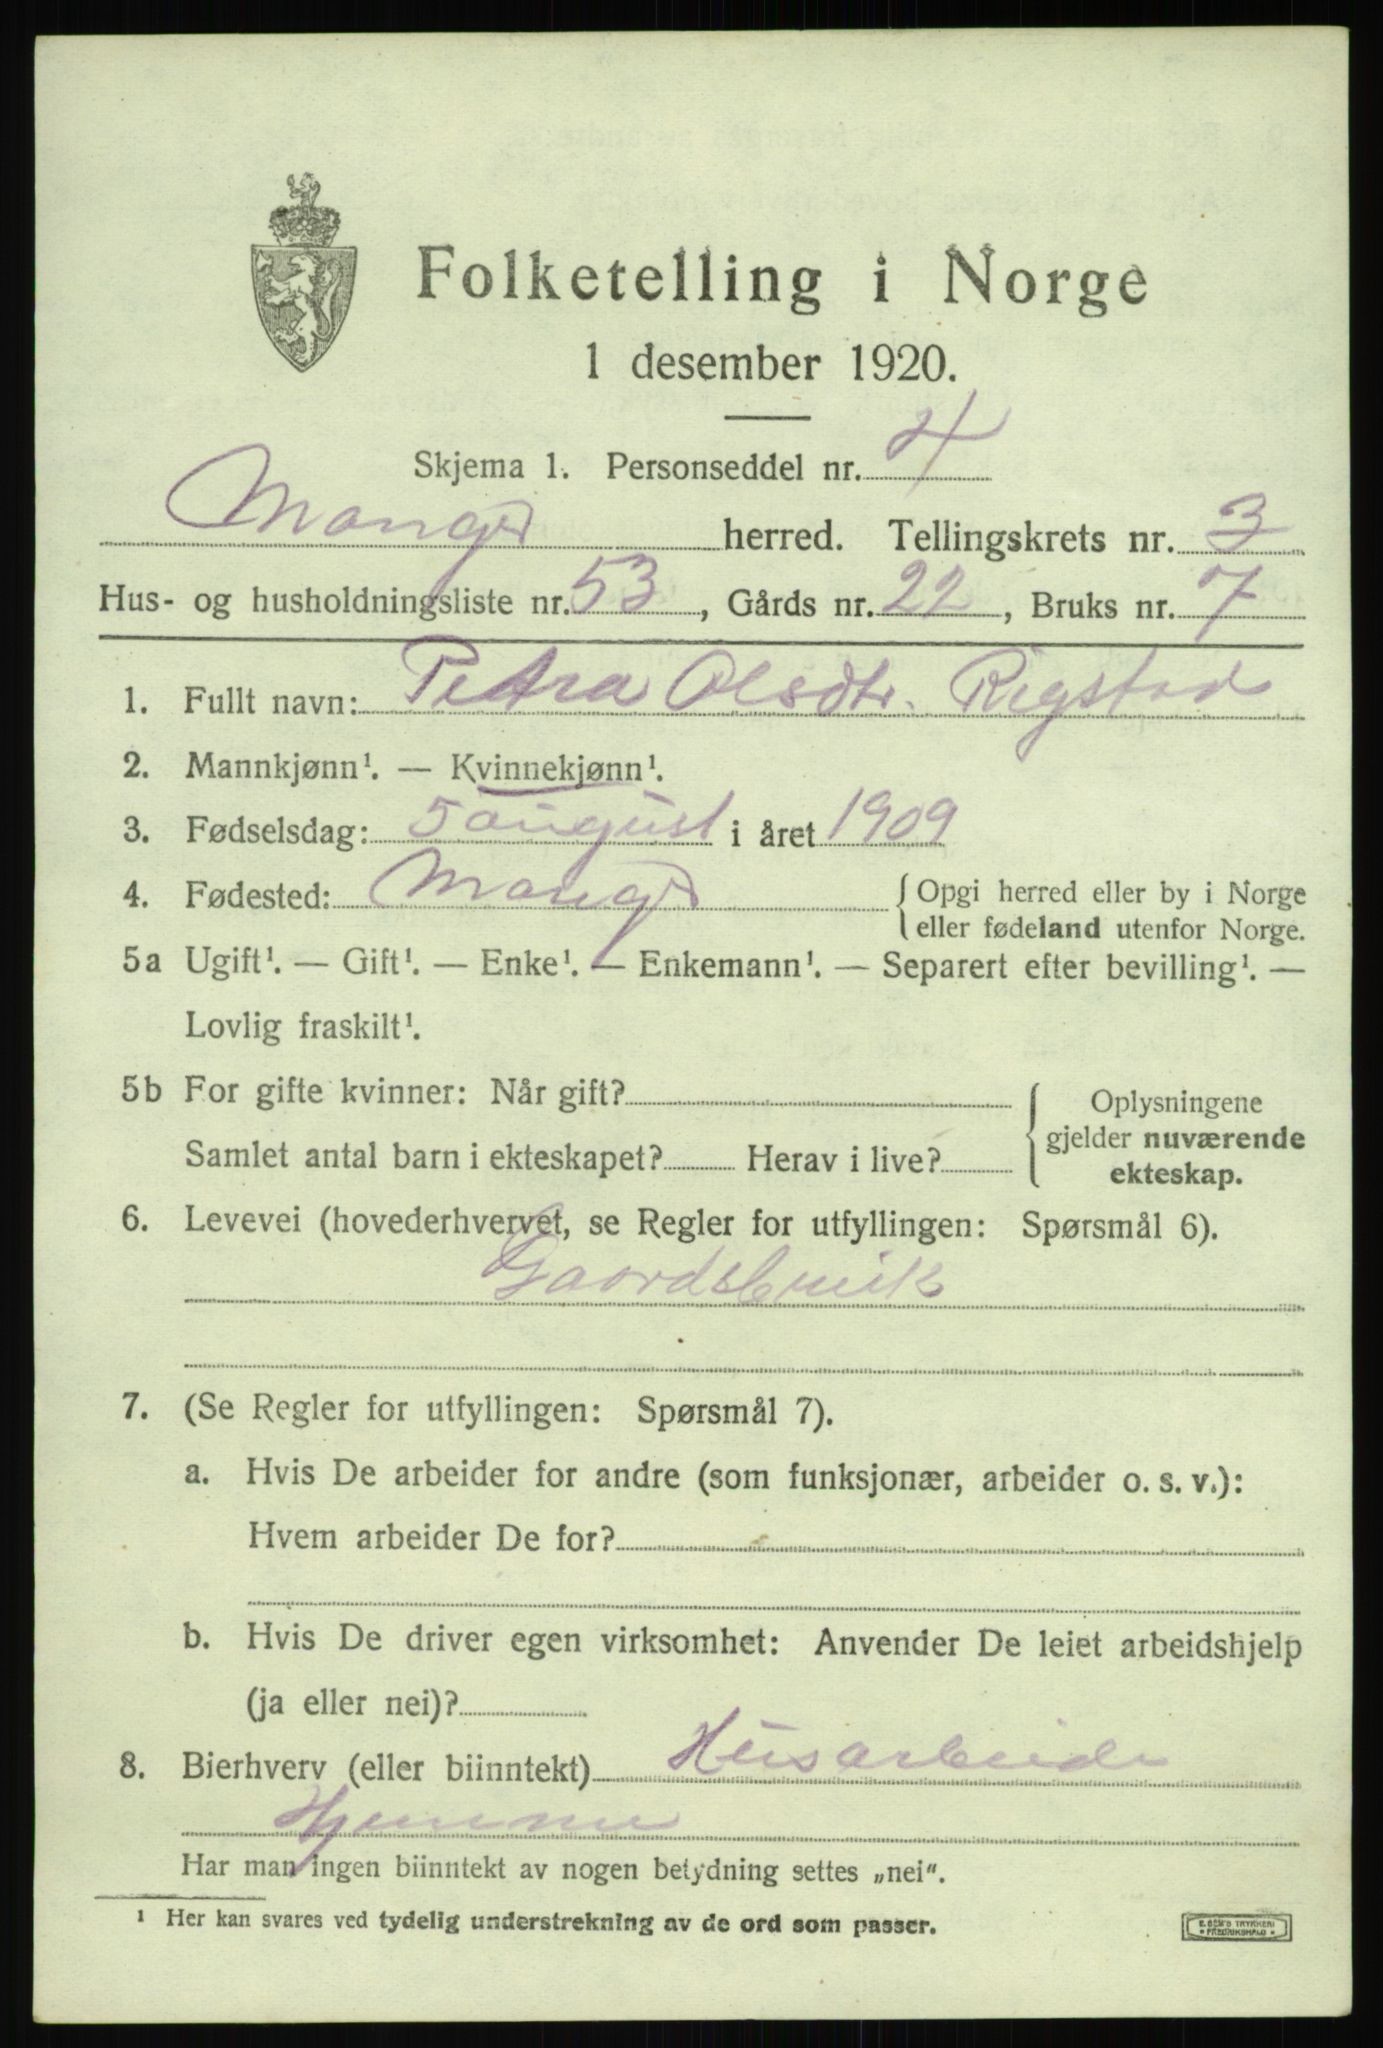 Folketelling i Norge
1 desember 1920.
Skjema 1. Personseddel nr. 4
Manger herred. Tellingskrets nr. 3
Hus- og husholdningsliste nr. 53, Gårds nr. 22, Bruks nr. 7
1. Fullt navn: Petra Olsdtr. Rigstad
2. Mannkjønn¹. — Kvinnekjønn¹.
3. Fødselsdag: 5 august i året 1909
4. Fødested: Manger { Opgi herred eller by i Norge
eller fødeland utenfor Norge.
5a Ugift¹. — Gift¹. — Enke¹. — Enkemann¹. — Separert efter bevilling¹. —
Lovlig fraskilt¹.
5b For gifte kvinner: Når gift?
Samlet antal barn i ekteskapet? Herav i live?
{ Oplysningene
gjelder nuværende
ekteskap.
6. Levevei (hovederhvervet, se Regler for utfyllingen: Spørsmål 6).
Gaardsbruik
7. (Se Regler for utfyllingen: Spørsmål 7).
a. Hvis De arbeider for andre (som funksjonær, arbeider o. s. v.):
Hvem arbeider De for?
b. Hvis De driver egen virksomhet: Anvender De leiet arbeidshjelp
(ja eller nei)?
8. Bierhverv (eller biinntekt) Husarbeide
Hjemme
Har man ingen biinntekt av nogen betydning settes „nei".
¹ Her kan svares ved tydelig understrekning av de ord som passer.
E. SEM'S TRYKKERI
* FREDRIKSHALD *